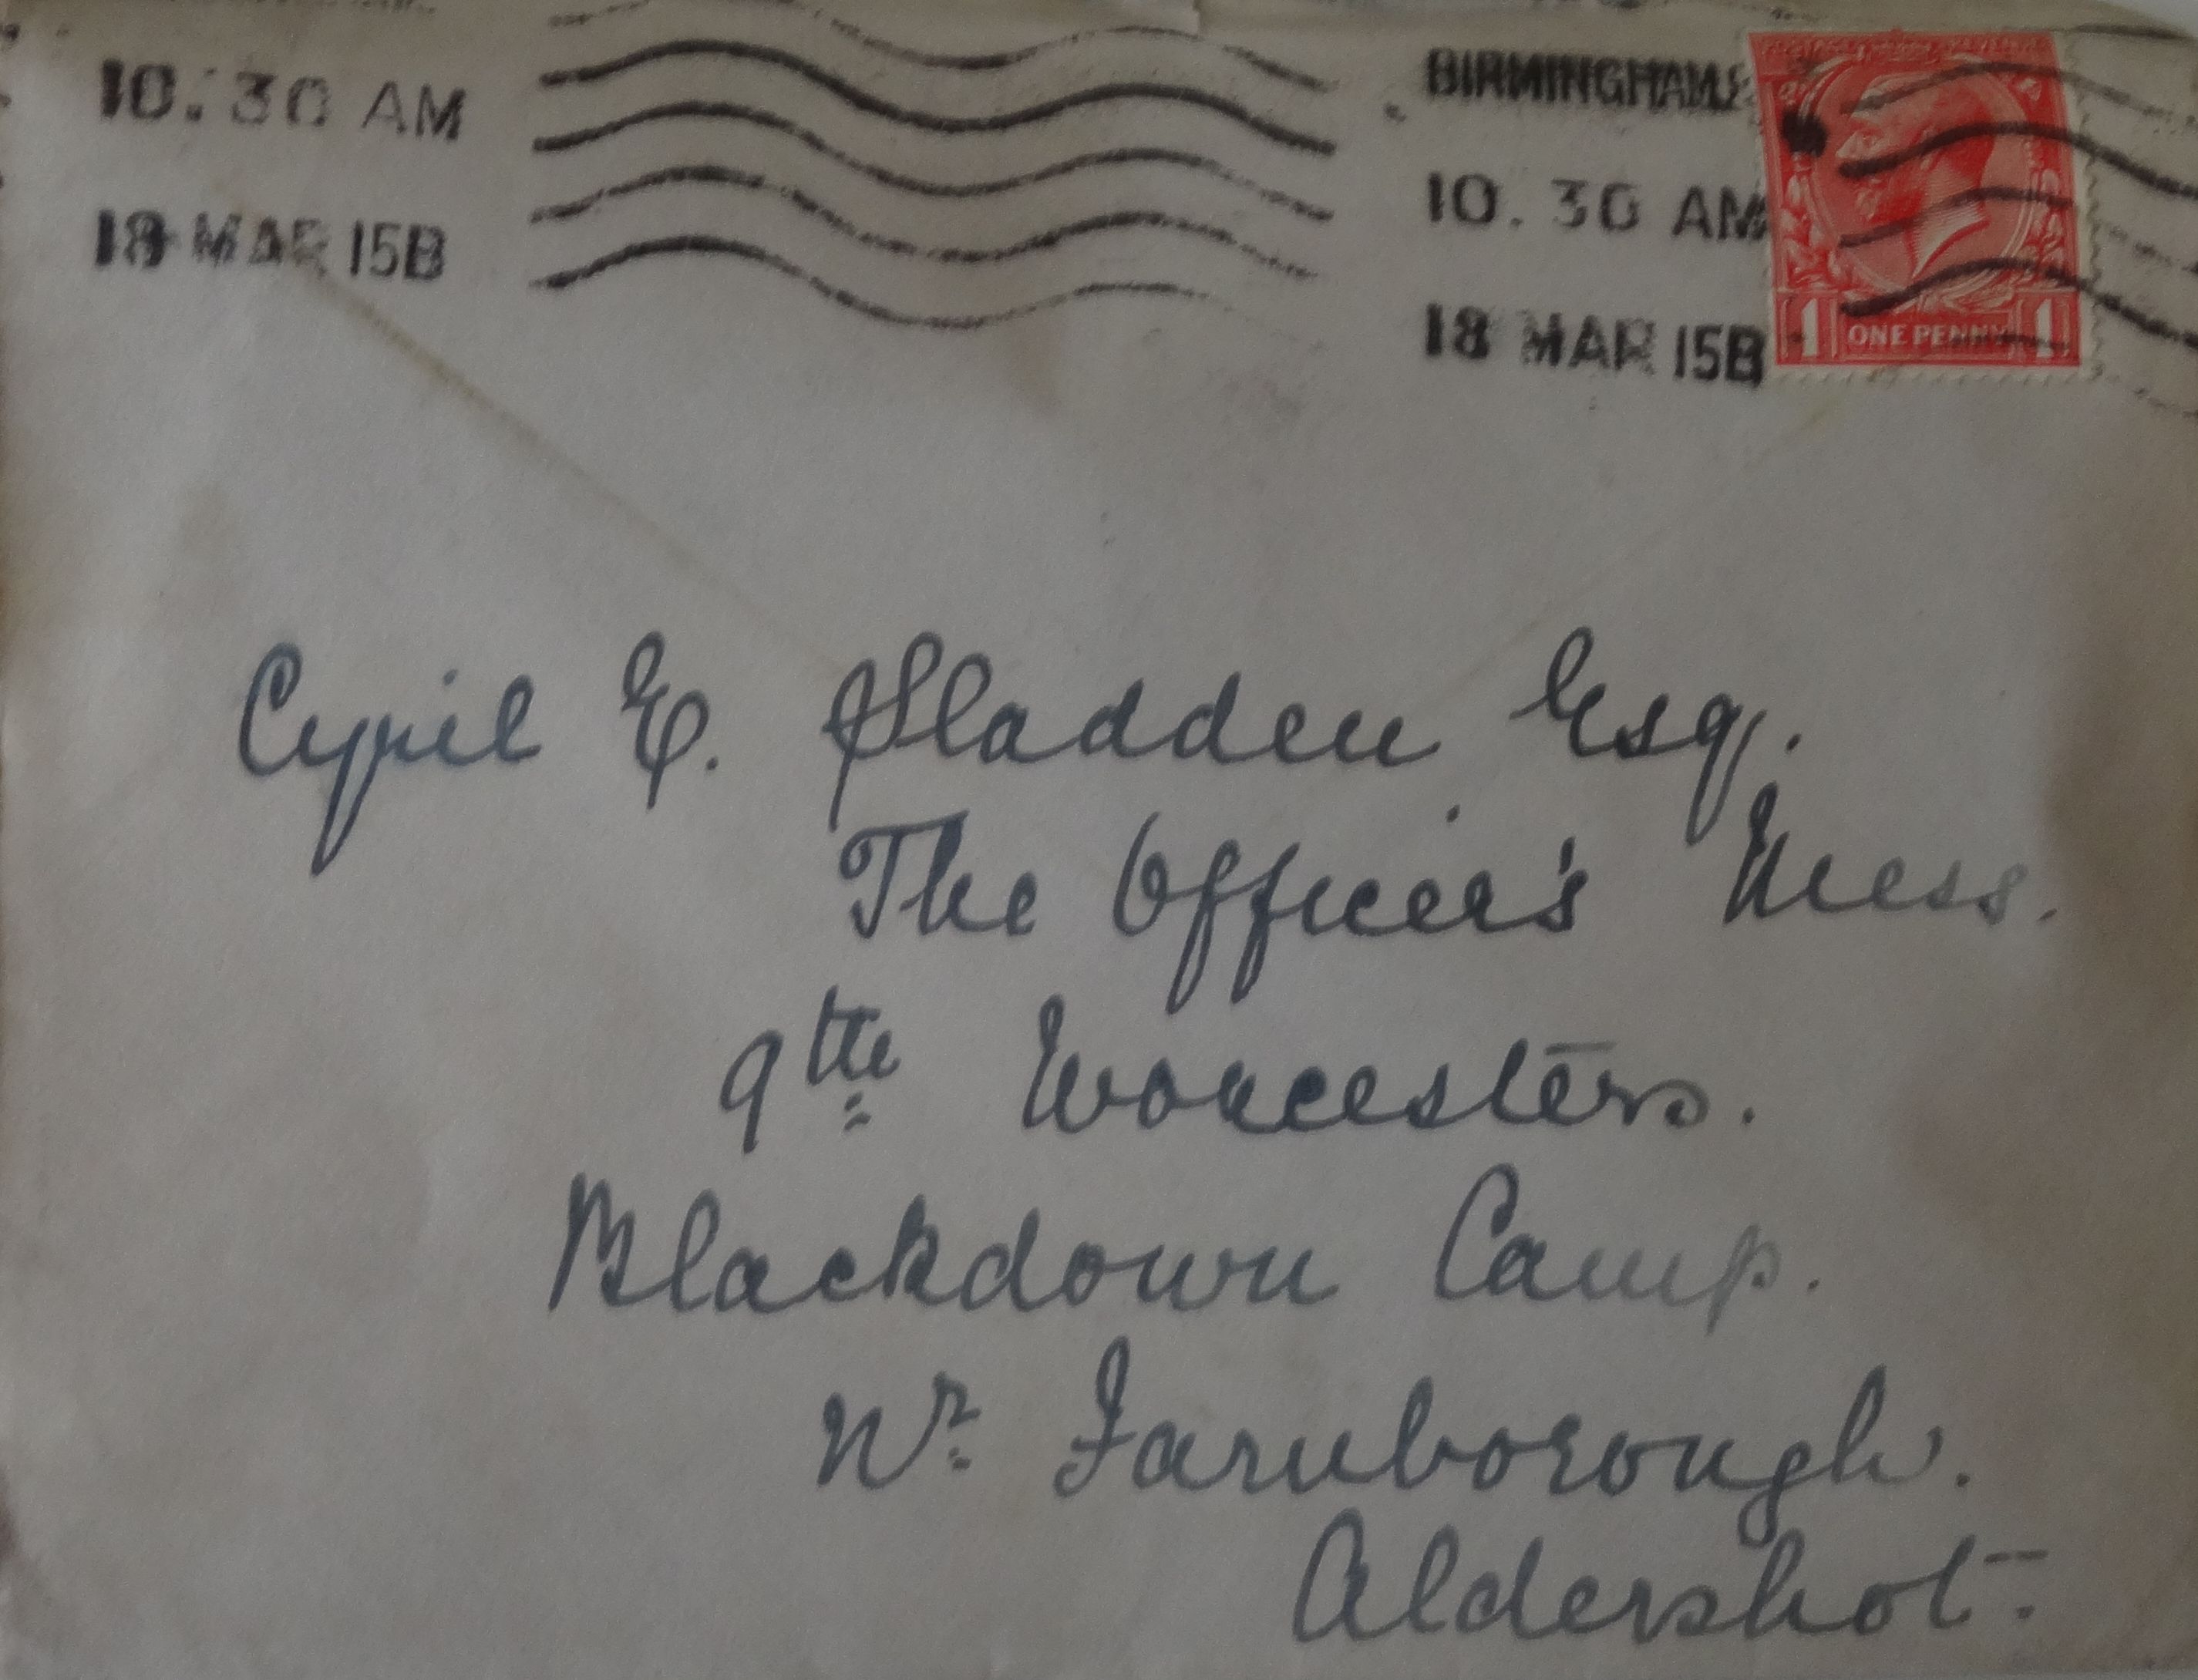 10.30 AM
18 MAR 15B
BIRMINGHAM
10.30 AM
18 MAR 15B
1 ONE PENNY 1
Cyril E. Sladden Esq.
The Officer's Mess.
9th Worcesters.
Blackdown Camp.
Nr. Farnborough.
Aldershot.